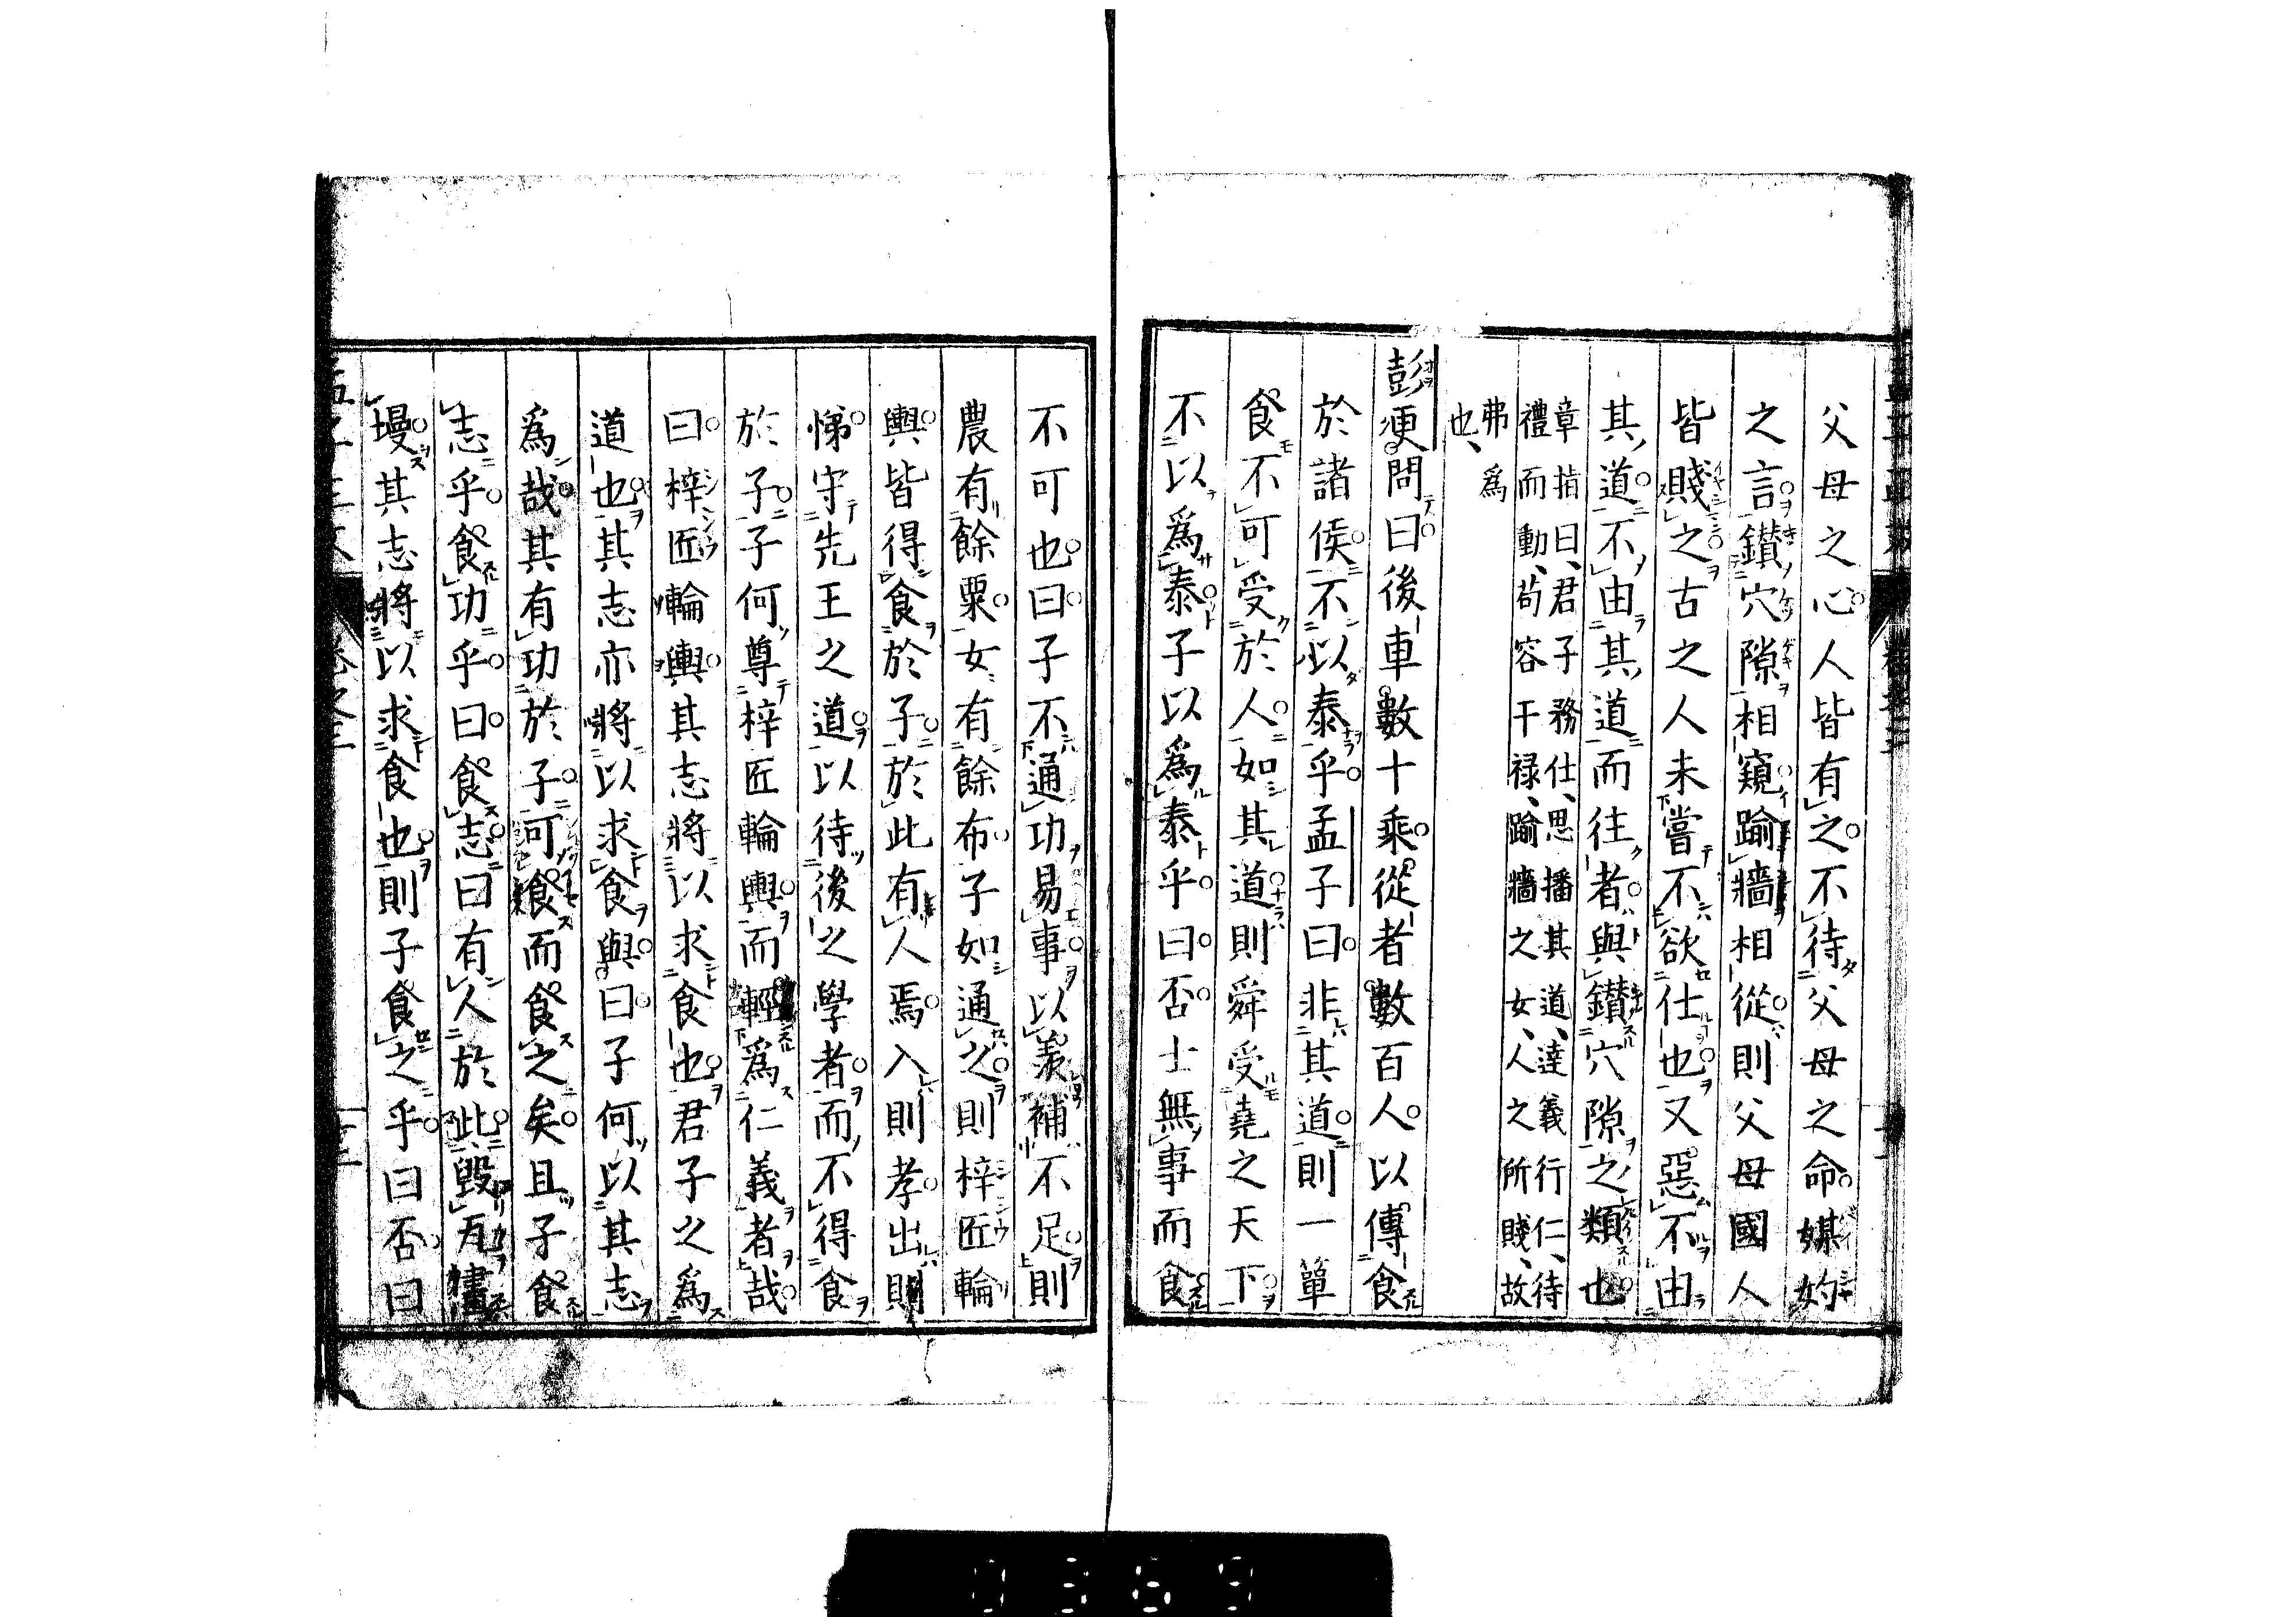 父母之心人皆有之不待父母之命媒妁
之言鑚穴隙相窺踰牆相從則父母國人
皆賤之古之人未嘗不欲仕也又惡不由
其道不由其道而往者與鑚穴隙之類也
章指曰、君子務仕、思播其道、達義行仁、待
禮而動、苟容干禄、踰牆之女、人之所賤、故
弗爲
也、
彭更問曰後車數十乘從者數百人以傳食
於諸侯不以泰乎孟子曰非其道則一簞
食不可受於人如其道則舜受堯之天下
不以爲泰子以爲泰乎曰否士無事而食
不可也曰子不通功易事以羨補不足則
農有餘粟女有餘布子如通之則梓匠輪
輿皆得食於子於此有人焉入則孝出則
悌守先王之道以待後之學者而不得食
於子子何尊梓匠輪輿而輕爲仁義者哉
曰梓匠輪輿其志將以求食也君子之爲
道也其志亦將以求食與曰子何以其志
爲哉其有功於子可食而食之矣且子食
志乎食功乎曰食志曰有人於此毀瓦畫
墁其志將以求食也則子食之乎曰否曰
0369